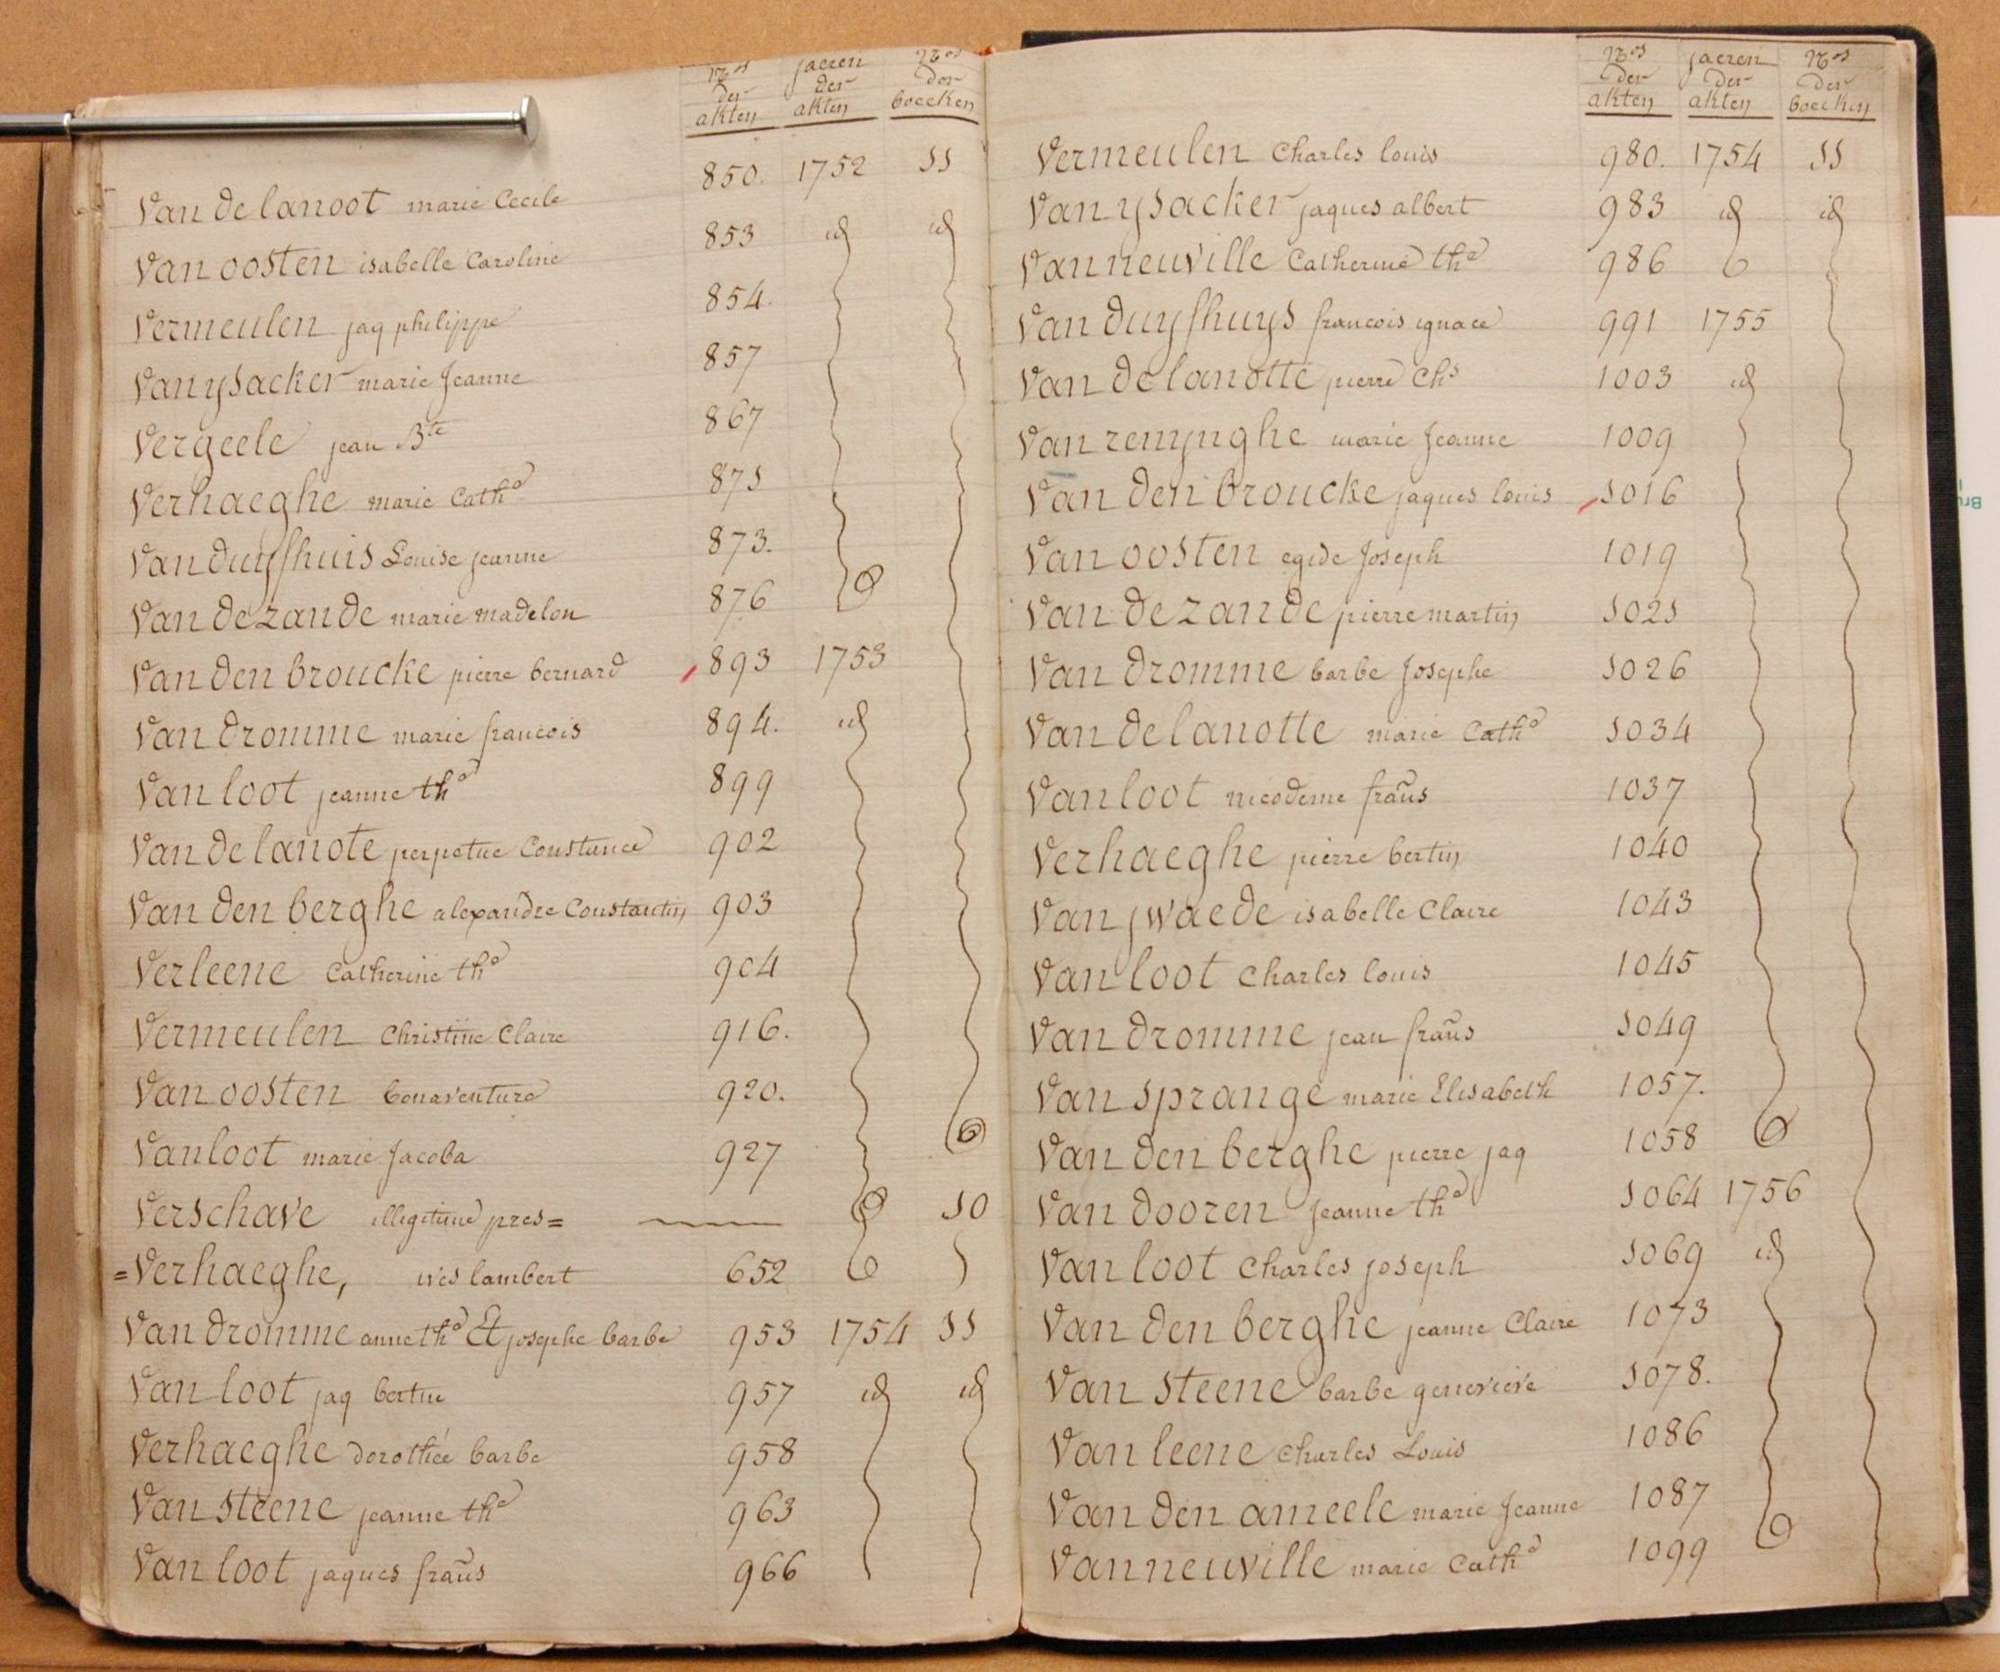 Nos der akten jaeren der akten Nos der boecken
Van de lanoot marie Cecile 850. 1752 11
Van oosten isabelle Caroline 853 id id
Vermeulen jaq philippe 854.
Van ysacker marie Jeanne 857
Vergeele jean Bte 867
Verhaeghe marie Cathe 871
Van duyfhuis Louise jeanne 873.
Van de zande marie madelon 876
Van den broucke pierre bernard 893 1753
Van dromme marie francois 894. id
Van loot jeanne the 899
Van de lanote perpetue Constance 902
Van den berghe alexandre Constantin 903
Verleene Catherine the 904
Vermeulen Christine Claire 916.
Van oosten bonaventure 920.
Van loot marie Jacoba 927
Verschave illegitime pres= 10
=Verhaeghe, ives lambert 652
Van dromme anne the Et josephe barbe 953 1754 11
Van loot jaq bertin 957 id id
Verhaeghe dorothée barbe 958
Van steene jeanne the 963
Van loot jaques frañs 966
Nos der akten jaeren der akten Nos der boecken
Vermeulen Charles louis 980. 1754 11
Van ysacker jaques albert 983 id id
Van neuville Catherine the 986
Van duyfhuys francois ignace 991 1755
Van de lanotte pierre Chs 1003 id
Van remynghe marie Jeanne 1009
Van den broucke jaques louis 1016
Van oosten egide Joseph 1019
Van de zande pierre martin 1021
Van dromme barbe Josephe 1026
Van de lanotte marie Cathe 1034
Van loot nicodeme frañs 1037
Verhaeghe pierre bertin 1040
Van jwaede isabelle Claire 1043
Van loot Charles louis 1045
Van dromme jean frañs 1049
Van sprange marie Elisabeth 1057.
Van den berghe pierre jaq 1058
Van dooren Jeanne the 1064 1756
Van loot Charles joseph 1069 id
Van den berghe jeanne Claire 1073
Van steene barbe genevieve 1078.
Van leene Charles Louis 1086
Van den ameele marie Jeanne 1087
Van neuville marie Cathe 1099